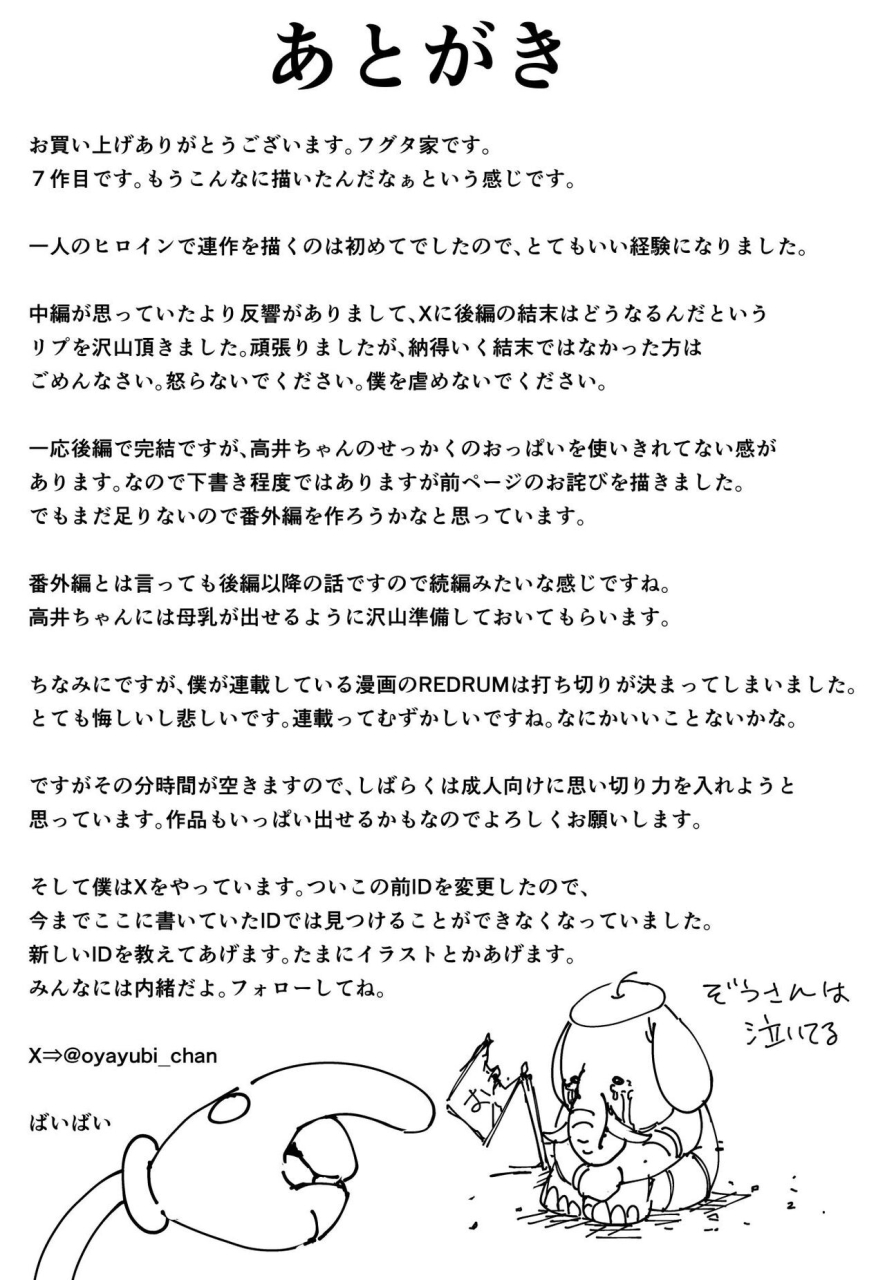 あとがき
お買い上げありがとうございます。フグタ家です。
７作目です。もうこんなに描いたんだなぁという感じです。
一人のヒロインで連作を描くのは初めてでしたので、とてもいい経験になりました。
中編が思っていたより反響がありまして、Xに後編の結末はどうなるんだという
リプを沢山頂きました。頑張りましたが、納得いく結末ではなかった方は
ごめんなさい。怒らないでください。僕を虐めないでください。
一応後編で完結ですが、高井ちゃんのせっかくのおっぱいを使いきれてない感が
あります。なので下書き程度ではありますが前ページのお詫びを描きました。
でもまだ足りないので番外編を作ろうかなと思っています。
番外編とは言っても後編以降の話ですので続編みたいな感じですね。
高井ちゃんには母乳が出せるように沢山準備しておいてもらいます。
ちなみにですが、僕が連載している漫画のREDRUMは打ち切りが決まってしまいました。
とても悔しいし悲しいです。連載ってむずかしいですね。なにかいいことないかな。
ですがその分時間が空きますので、しばらくは成人向けに思い切り力を入れようと
思っています。作品もいっぱい出せるかもなのでよろしくお願いします。
そして僕はXをやっています。ついこの前IDを変更したので、
今までここに書いていたIDでは見つけることができなくなっていました。
新しいIDを教えてあげます。たまにイラストとかあげます。
みんなには内緒だよ。フォローしてね。
ぞうさんは
泣いてる
X⇒@oyayubi_chan
お
ばいばい